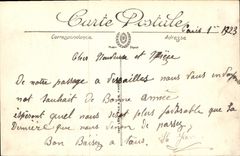 Carte Postale
Correspondance
Adresse
Paris 1er 1923
Cher Monsieur et
De notre passage a Versailles nous vous
souhait de Bonne année
espérant quel nous soit plus favorable que la
Dernière que nous venon de passez
Bon Baisez a tous